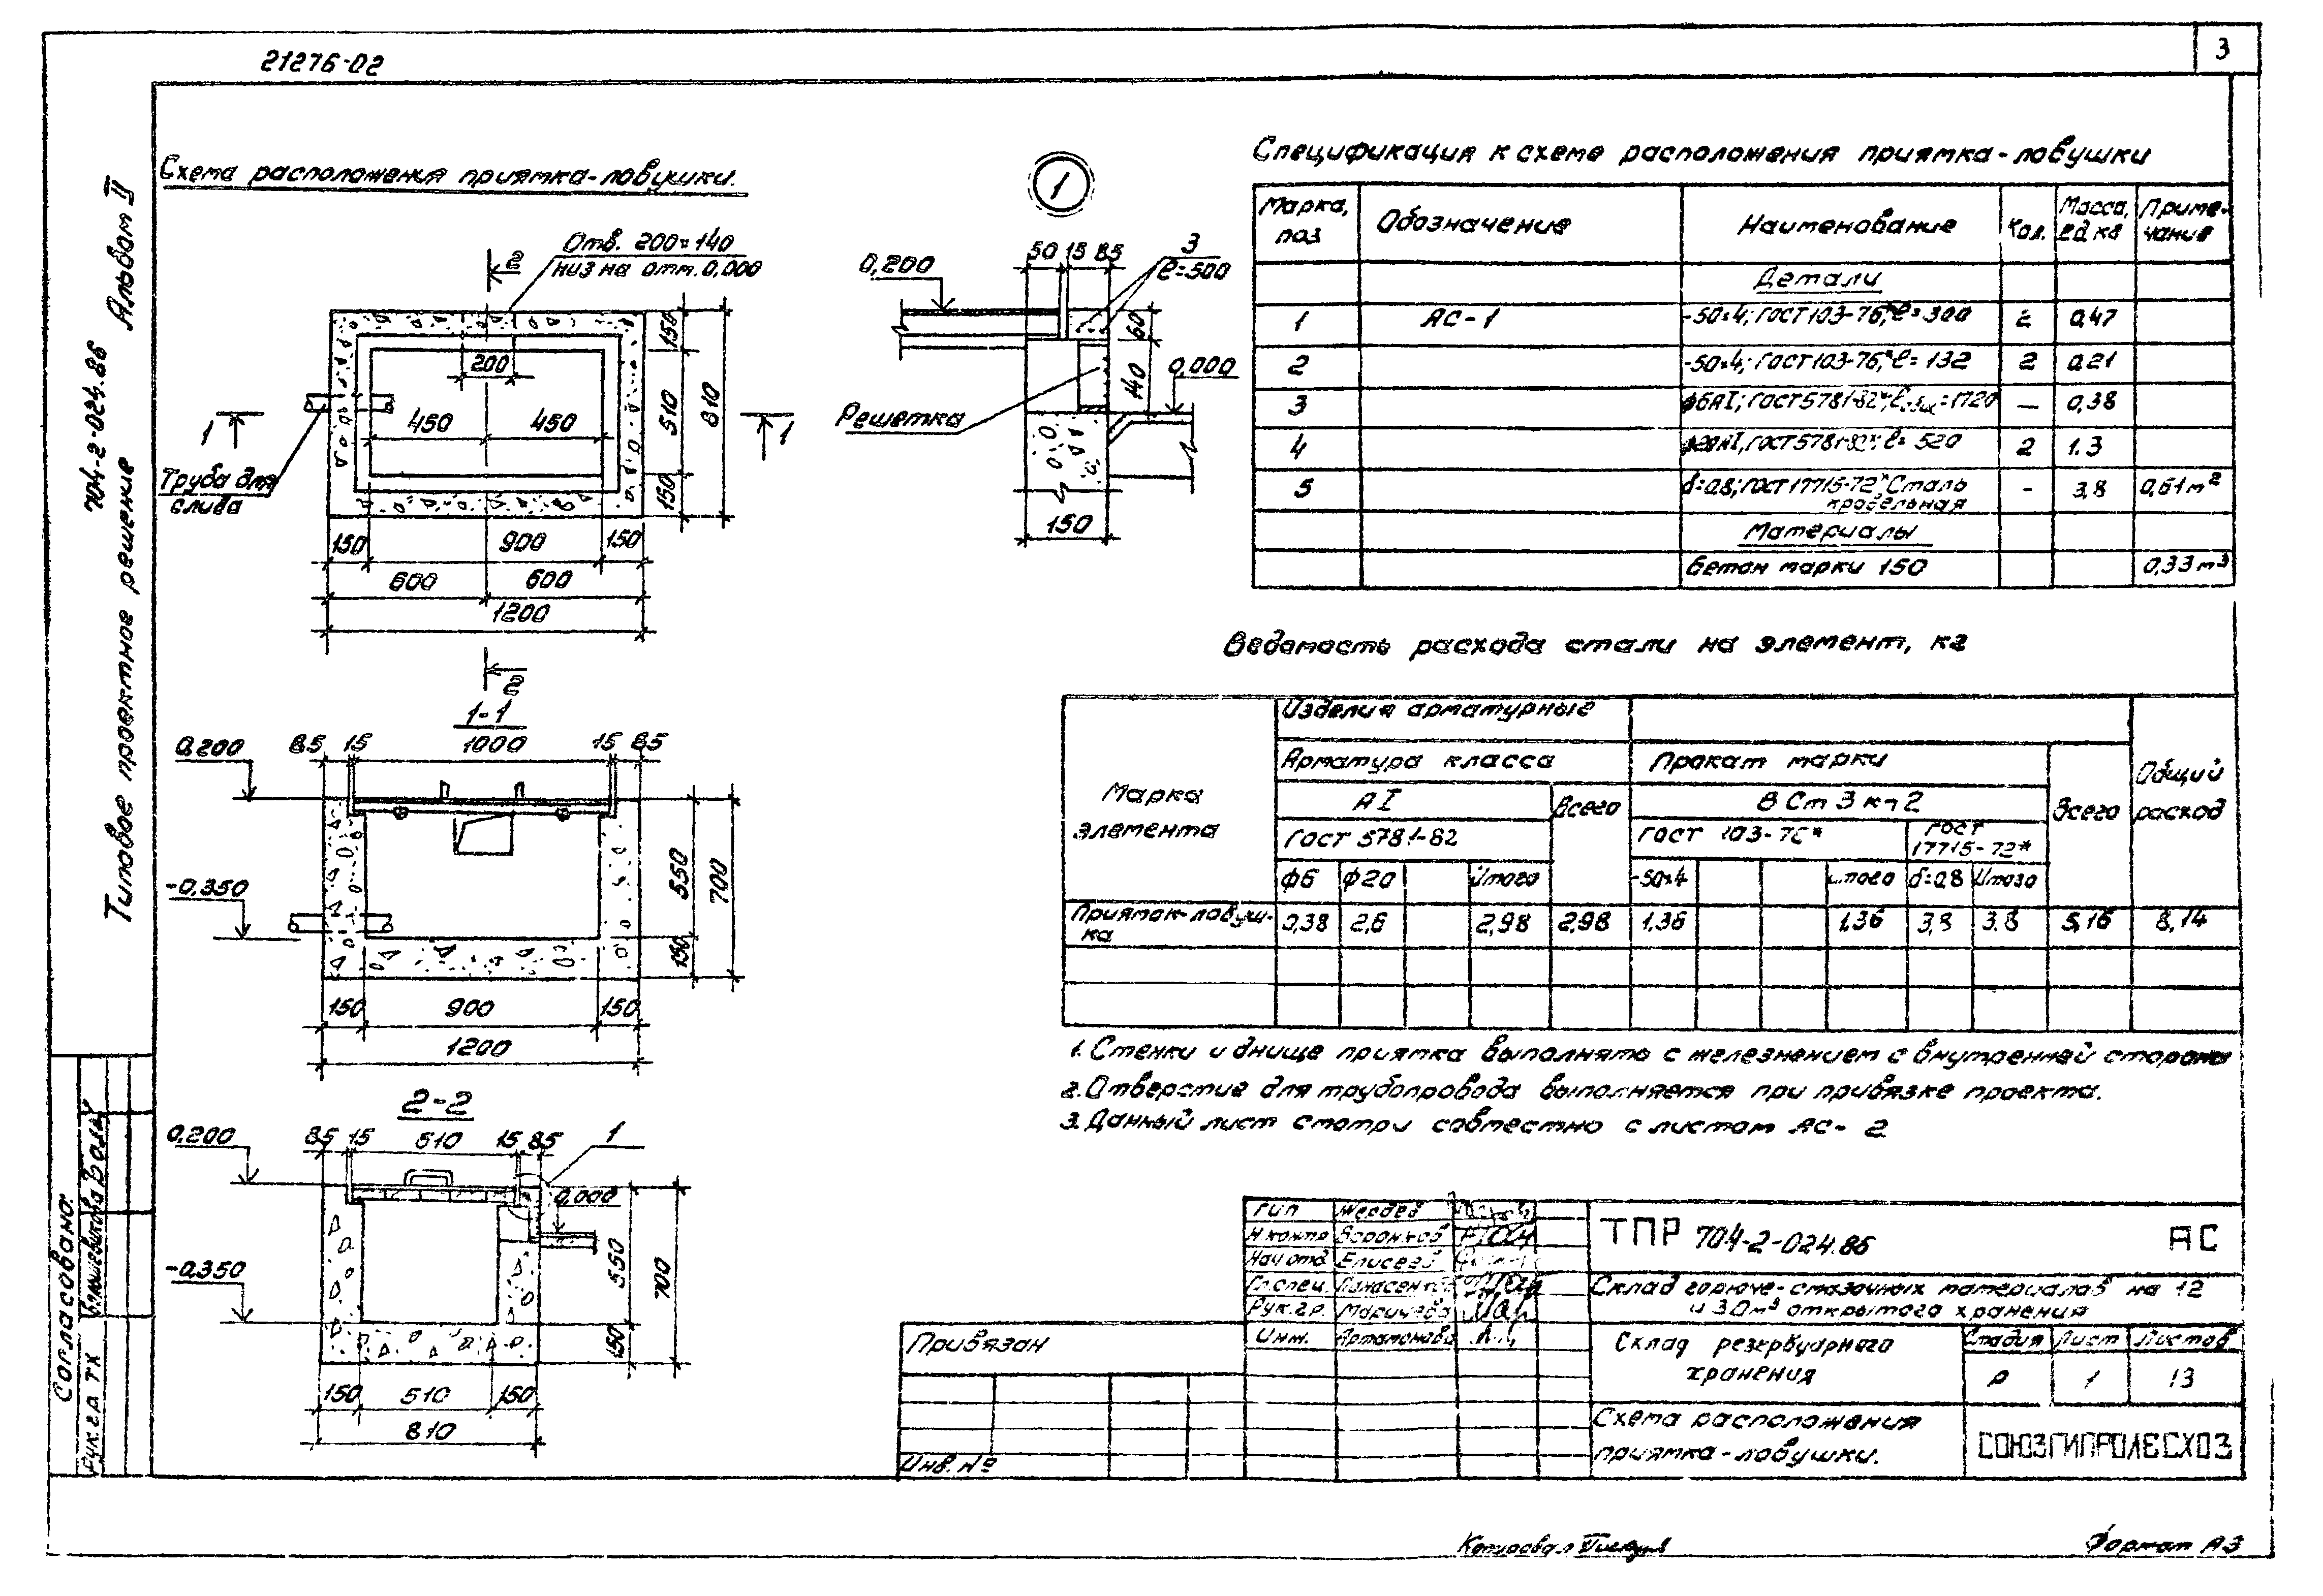 21276-02
3
Типовое проектное решение 704-2-024.86 Альбом II
Схема расположения приямка-ловушки.
Отв. 200×140
низ на отм. 0,000
2
200
450 450
1 1
Труба для
слива
150 510 150 810
150 900 150
600 600
1200
2
1
0,200
50 15 85
3
ℓ=500
60
140
0,000
Решетка
150
1-1
0,200 85 15 1000 15 85
-0,350
550 700
150
150 900 150
1200
2-2
0,200 85 15 510 15 85 1
0,000
-0,350
550 700
150
150 510 150
810
Спецификация к схеме расположения приямка-ловушки
Марка, поз Обозначение Наименование Кол. Масса, ед кг Приме-чание
Детали
1 АС-1 -50×4; ГОСТ 103-76*, ℓ=300 2 0,47
2 -50×4; ГОСТ 103-76*, ℓ=132 2 0,21
3 ф6АI; ГОСТ 5781-82*; ℓобщ=1720 — 0,38
4 ф20АI, ГОСТ 5781-82*; ℓ=520 2 1.3
5 δ=0,8; ГОСТ 17715-72* Сталь - 3,8 0,61м²
кровельная
Материалы
Бетон марки 150 0,33м³
Ведомость расхода стали на элемент, кг
Марка элемента
Изделия арматурные
Арматура класса Прокат марки
Общий расход
АI Всего ВСт3кп2 Всего
ГОСТ 5781-82 ГОСТ 103-76* ГОСТ 17715-72*
ф6 ф20 Итого -50×4 Итого δ=0,8 Итого
Приямок-ловуш-ка 0,38 2,6 2,98 2,98 1,36 1,36 3,8 3.8 5,16 8,14
1. Стенки и днище приямка выполнять с железнением с внутренней стороны
2. Отверстие для трубопровода выполняется при привязке проекта.
3. Данный лист смотри совместно с листом АС-2
Согласовано:
Рук. гр. ТХ
Гип
Н.контр Воронков
Нач отд Елисеев
Гл.спец.
Рук.гр. Маричева
Инж. Артамонова
ТПР 704-2-024.86 АС
Склад горюче-смазочных материалов на 12
и 30м³ открытого хранения
Склад резервуарного
хранения
Стадия Лист Листов
Р 1 13
Схема расположения
приямка-ловушки.
СОЮЗГИПРОЛЕСХОЗ
Привязан
Инв. №
Копировал
Формат А3